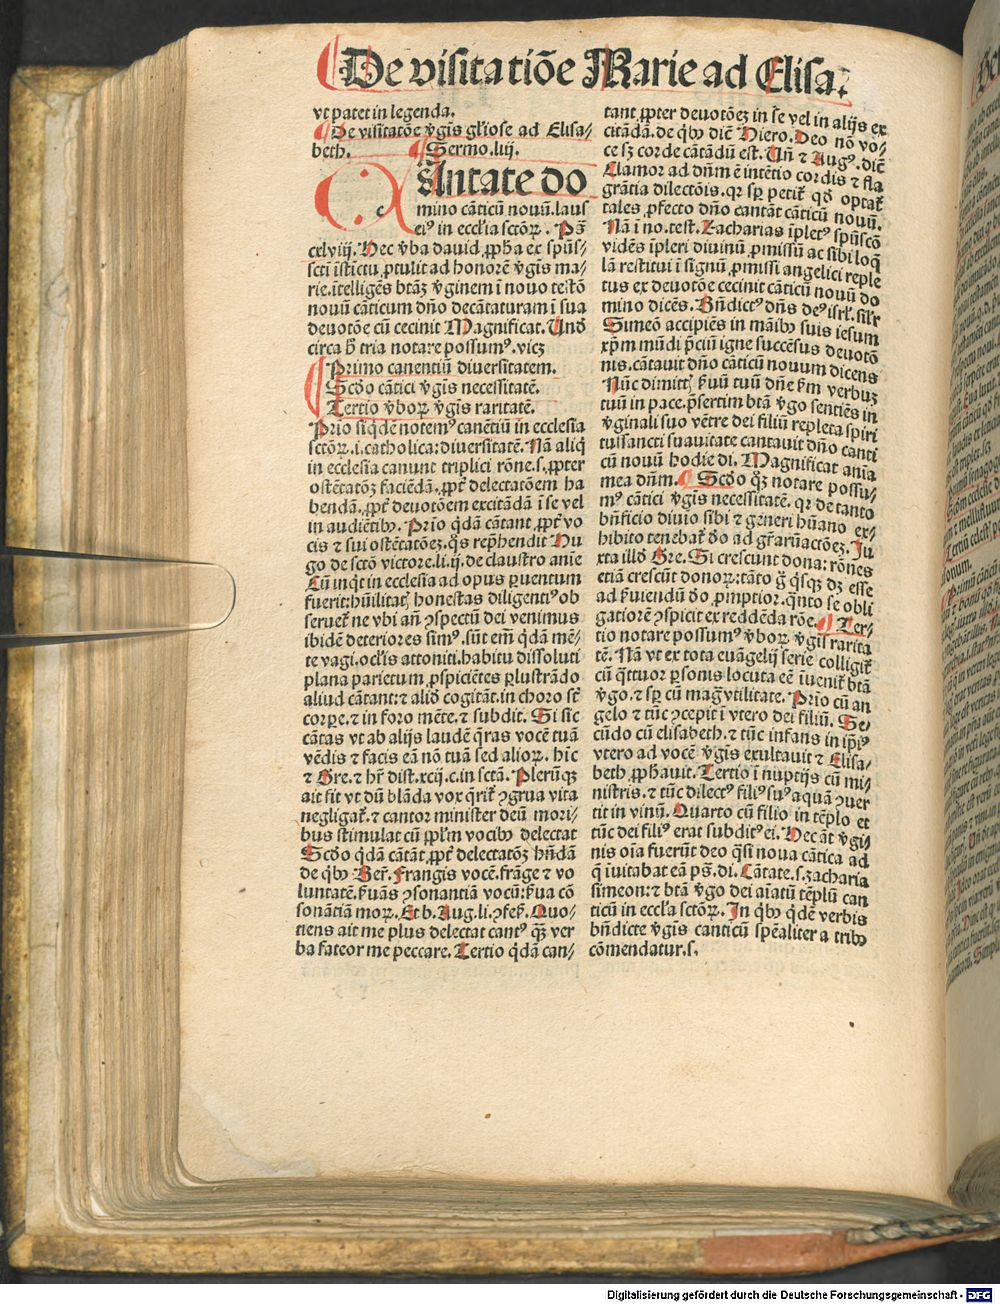 De visitatiõe Marie ad Elisa.
vt patet in legenda.
De visitatõe v̾gĩs gl'iose ad Elisa-
beth. Sermo.liij.
CAntate do
mino cãticũ nouũ.laus
ei⁹ in eccl'ia sctõꝝ. Pš
cxlviij. Hec v̾ba dauid ꝓph̄a ex spũs-
scti ĩstĩctu ꝓtulit ad honorẽ v̾gĩs ma-
rie.ĩtelligẽs btãꝫ v̾ginem ĩ nouo testõ
nouũ cãticum dño decãtaturam ĩ sua
deuotõe cũ cecinit Magnificat. Vnđ
circa h̾ tria notare possum⁹.vicꝫ
Primo canentiũ diuersitatem.
Scďo cãtici v̾gĩs necessitatẽ.
Tertio v̾boꝝ v̾gĩs raritatẽ.
Prĩo siq̃dẽ notem⁹ canẽtiũ in ecclesia
sctõꝝ.i.catholica:diuersitatẽ. Nã aliq̃
in ecclesia canunt triplici rõne.s.ꝓpter
ostẽtatõꝫ faciẽdã.ꝓpt̃ delectatõem ha
bendã.ꝓpt̃ deuotõem excitãdã ĩ se vel
in audiẽtibꝰ. Prĩo q̃dã cãtant ꝓpt̃ vo
cis ⁊ sui ostẽtatõeꝫ.q̃s rep̃hendit Hu
go de sctõ victore.li.ij.de claustro anĩe
Cũ inq̃t in ecclesia ad opus ꝑuentum
fuerit:hũilitat̃ honestas diligenti⁹ ob
seruet̃ ne vbi añ ꝯspectũ dei venimus
ibidẽ deteriores sim⁹.sũt em̃ q̃dã mẽ-
te vagi.ocl'is attoniti.habitu dissoluti
plana parietum ꝓspiciẽtes ꝑlustrãdo
aliud cãtant:⁊ aliđ cogitãt.in choro st̃
corꝑe.⁊ in foro mẽte.⁊ subdit. Si sic
cãtas vt ab alijs laudẽ q̃ras vocẽ tuã
vẽdis ⁊ facis eã nõ tuã sed alioꝝ. hĩc
⁊ Gre.⁊ hr̃ dist.xcij.c.in sctã. Plerũqꝫ
ait fit vt dũ blãda vox q̃rit̃ ꝯgrua vita
negligat̃.⁊ cantor minister deũ mori-
bus stimulat cũ ppl'm vocibꝰ delectat
Scďo q̃dã cãtãt ꝓpt̃ delectatõꝫ hñdã
de qbꝰ Ber̃. Frangis vocẽ.frãge ⁊ vo
luntatẽ.ẜuãs ꝯsonantiã vocũ:ẜua cõ
sonãtiã moꝝ. Et b. Aug.li.ꝯfeß. Quo-
tiens ait me plus delectat cant⁹ q̃ꝫ ver
ba fateor me peccare. Tertio q̃dã can-
tant ꝓpter deuotõeꝫ in se vel in alijs ex
citãdã.de qbꝰ diẽ Hiero. Deo nõ vo-
ce sꝫ corde cãtãdũ est. Vñ ⁊ Aug⁹.diẽ
Clamor ad dñm ẽ intẽtio cordis ⁊ fla
grãtia dilectõis.qr sꝑ petit̃ qđ optat̃
tales ꝓfecto dño cantãt cãticũ nouũ.
Nã ĩ no.test. Zacharias ĩplet⁹ spũscõ
vidẽs ĩpleri diuinũ ꝓmissũ ac sibi loq̃
lã restitui ĩ signũ ꝓmissi angelici reple
tus ex deuotõe cecinit cãticũ nouũ do
mino dicẽs. Bñdict⁹ dñs de⁹ isrl'.sil'r
Simeõ accipiẽs in mãibꝰ suis iesum
xp̃m mũdi p̃ciũ igne succẽsus deuotõ
nis.cãtauit dño cãticũ nouum dicens
Nũc dimittꝫ ẜuũ tuũ dñe ẜm verbuꝫ
tuũ in pace.p̃sertim btã v̾go sentiẽs in
v̾ginali suo vẽtre dei filiũ repleta spiri
tussancti suauitate cantauit dño canti
cũ nouũ hodie di. Magnificat anĩa
mea dñm. Scďo q̃ꝫ notare possu-
m⁹ cãtici v̾gĩs necessitatẽ. qr de tanto
bñficio diuĩo sibi ⁊ generi hũano ex-
hibito tenebat̃ đo ad gr̃aꝝactõeꝫ. Ju
xta illđ Gre. Si crescunt dona: rõnes
etiã crescũt donoꝝ:tãto g̃ q̃sqꝫ dꝫ esse
ad ẜuiendũ đo ꝓmptior.q̃nto se obli
gatiorẽ ꝯspicit ex reddẽda rõe. Ter-
tio notare possum⁹ v̾boꝝ v̾gĩs rarita
tẽ. Nã vt ex tota euãgelij serie colligit̃
cũ q̃ttuor ꝑsonis locuta eẽ ĩuenit̃ btã
v̾go.⁊ sꝑ cũ mag̃ vtilitate. Prĩo cũ an
gelo ⁊ tũc ꝯcepit ĩ vtero dei filiũ. Se-
cũdo cũ elisabeth.⁊ tũc infans in ip̃i⁹
vtero ad vocẽ v̾gĩs exultauit ⁊ Elisa-
beth ꝓph̾auit. Tertio ĩ nuptijs cũ mi-
nistris.⁊ tũc dilect⁹ fili⁹ su⁹ aquã ꝯuer
tit in vinũ. Quarto cũ filio in tẽplo et
tũc dei fili⁹ erat subdit⁹ ei. Hec ãt v̾gi-
nis oĩa fuerũt deo q̃si noua cãtica ad
q̃ iuitabat eã pš.di. Cãtate.s.zacharia
simeon:⁊ btã v̾go dei aĩatũ tẽplũ can
ticũ in eccl'a sctõꝝ. In qbꝰ q̃dẽ verbis
bñdicte v̾gĩs canticũ spẽaliter a tribꝰ
cõmendatur.s.
Digitalisierung gefördert durch die Deutsche Forschungsgemeinschaft - DFG